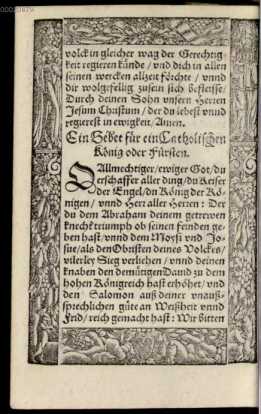 volck in gleicher wag der Gerechtig-
keit regieren künde / vnd dich in allen
seinen wercken allzeit förchte / vnnd
dir wolgefellig zusein sich befleisse /
Durch deinen Sohn vnsern Herren
Jesum Christum / der du lebst vnnd
regierest in ewigkeit / Amen.
Ein Gebet für ein Catholischen
König oder Fürsten.
O Allmechtiger / ewiger Got / du
erschaffer aller ding / du Keiser
der Engel / du König der Kö-
nigen / vnnd Herr aller Herren : Der
du dem Abraham deinem getrewen
knecht triumph ob seinen feinden ge-
ben hast / vnnd dem Moysi vnd Jo-
sue / als den Obristen deines Volckes /
vilerley Sieg verliehen / vnnd deinen
knaben den demütigen Dauid zu dem
hohen Königreich hast erhöhet / vnd
den Salomon auß deiner vnauß-
sprechlichen güte an Weißheit vnnd
Frid / reich gemacht hast : Wir bitten